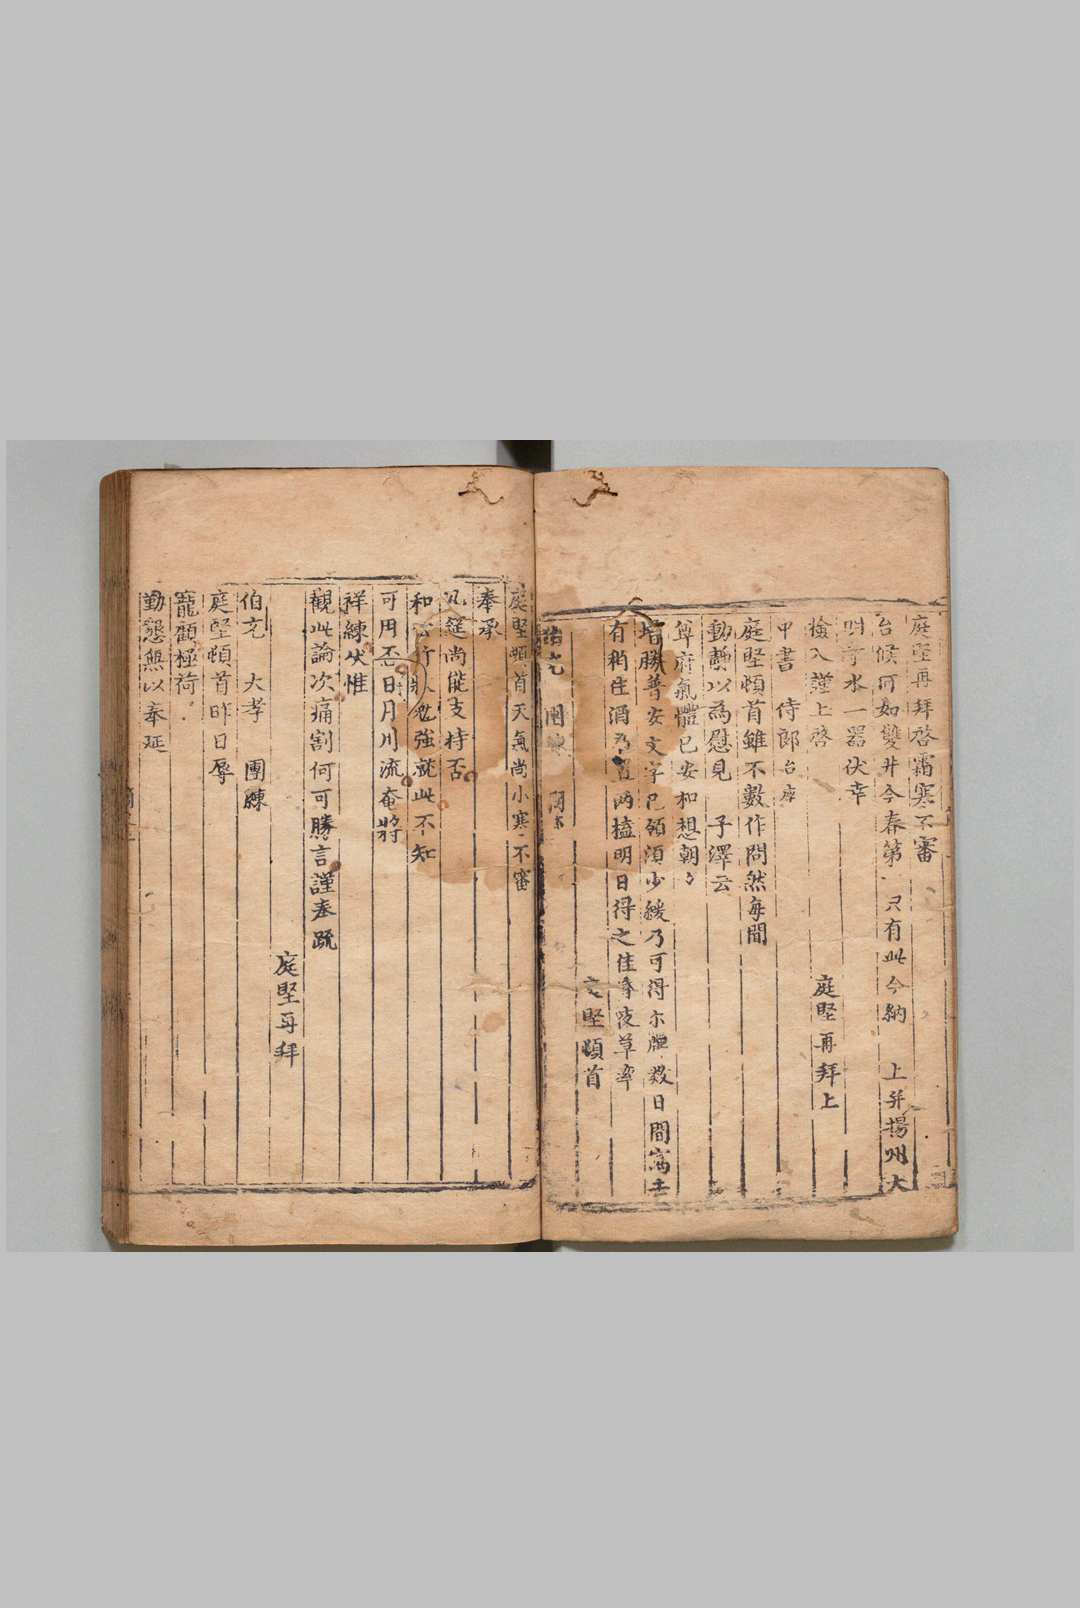 庭堅再拜啓霜寒不審
台候何如雙井今春第一只有此今納 上并揚州大
明寺水一器伏幸
檢入謹上啓 庭堅再拜上
中書 侍郎台座
庭堅頓首雖不數作問然每聞
動靜以為慰見 子澤云
尊府氣體已安和想朝々
增勝普安文字已領須少緩乃可得亦腫數日間寫
有稍佳酒為置兩榼明日得之佳 夜草率
庭堅頓首
伯充 團練 閤下
庭堅頓首天氣尚小寒不審
奉承
几筵尚能支持否
和云行 勉強就此不知
可用否日月川流奄將
祥練伏惟
觀此論次痛割何可勝言謹奉疏
庭堅再拜
伯充 大孝 團練
庭堅頓首昨日辱
寵顧極荷
勤懇無以奉延